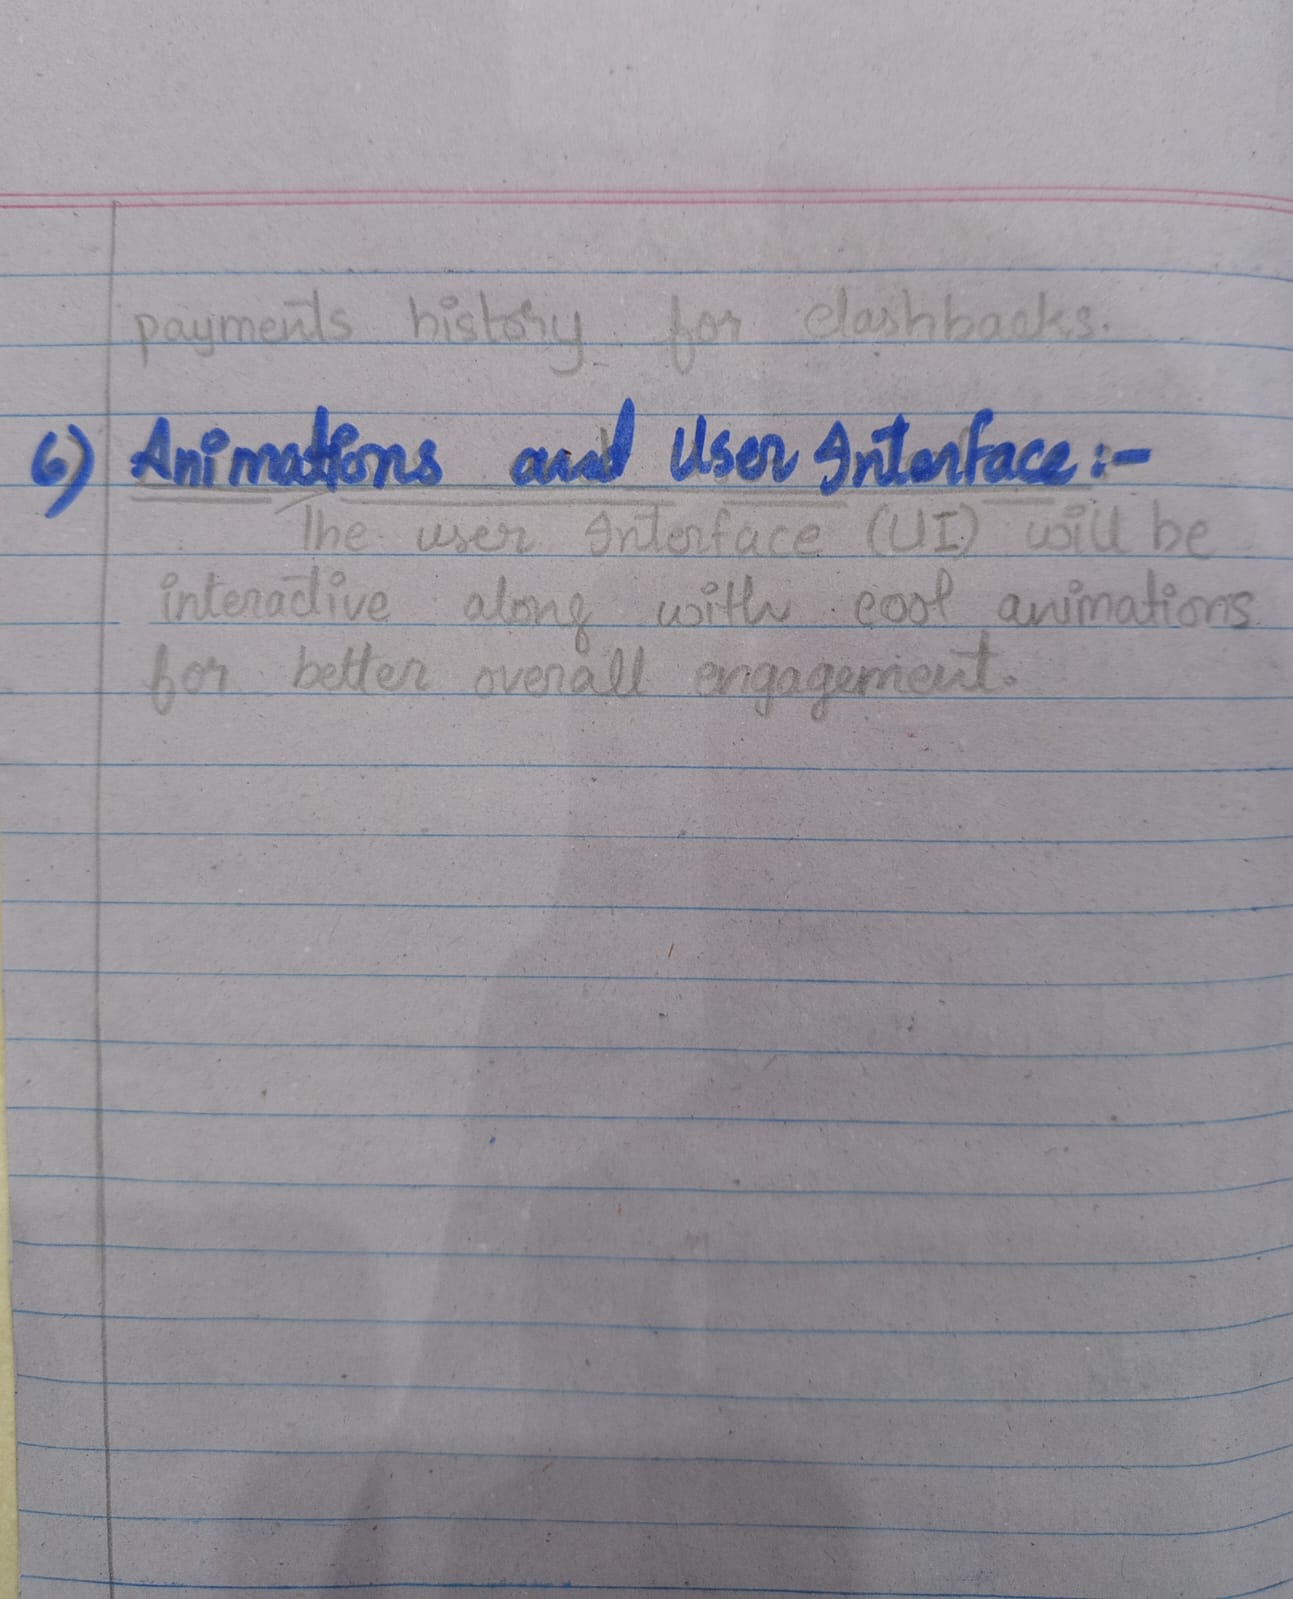 payments history for clashbacks.
6) Animations and User Interface:-
The user Interface (UI) will be
interactive along with cool animations
for better overall engagement.